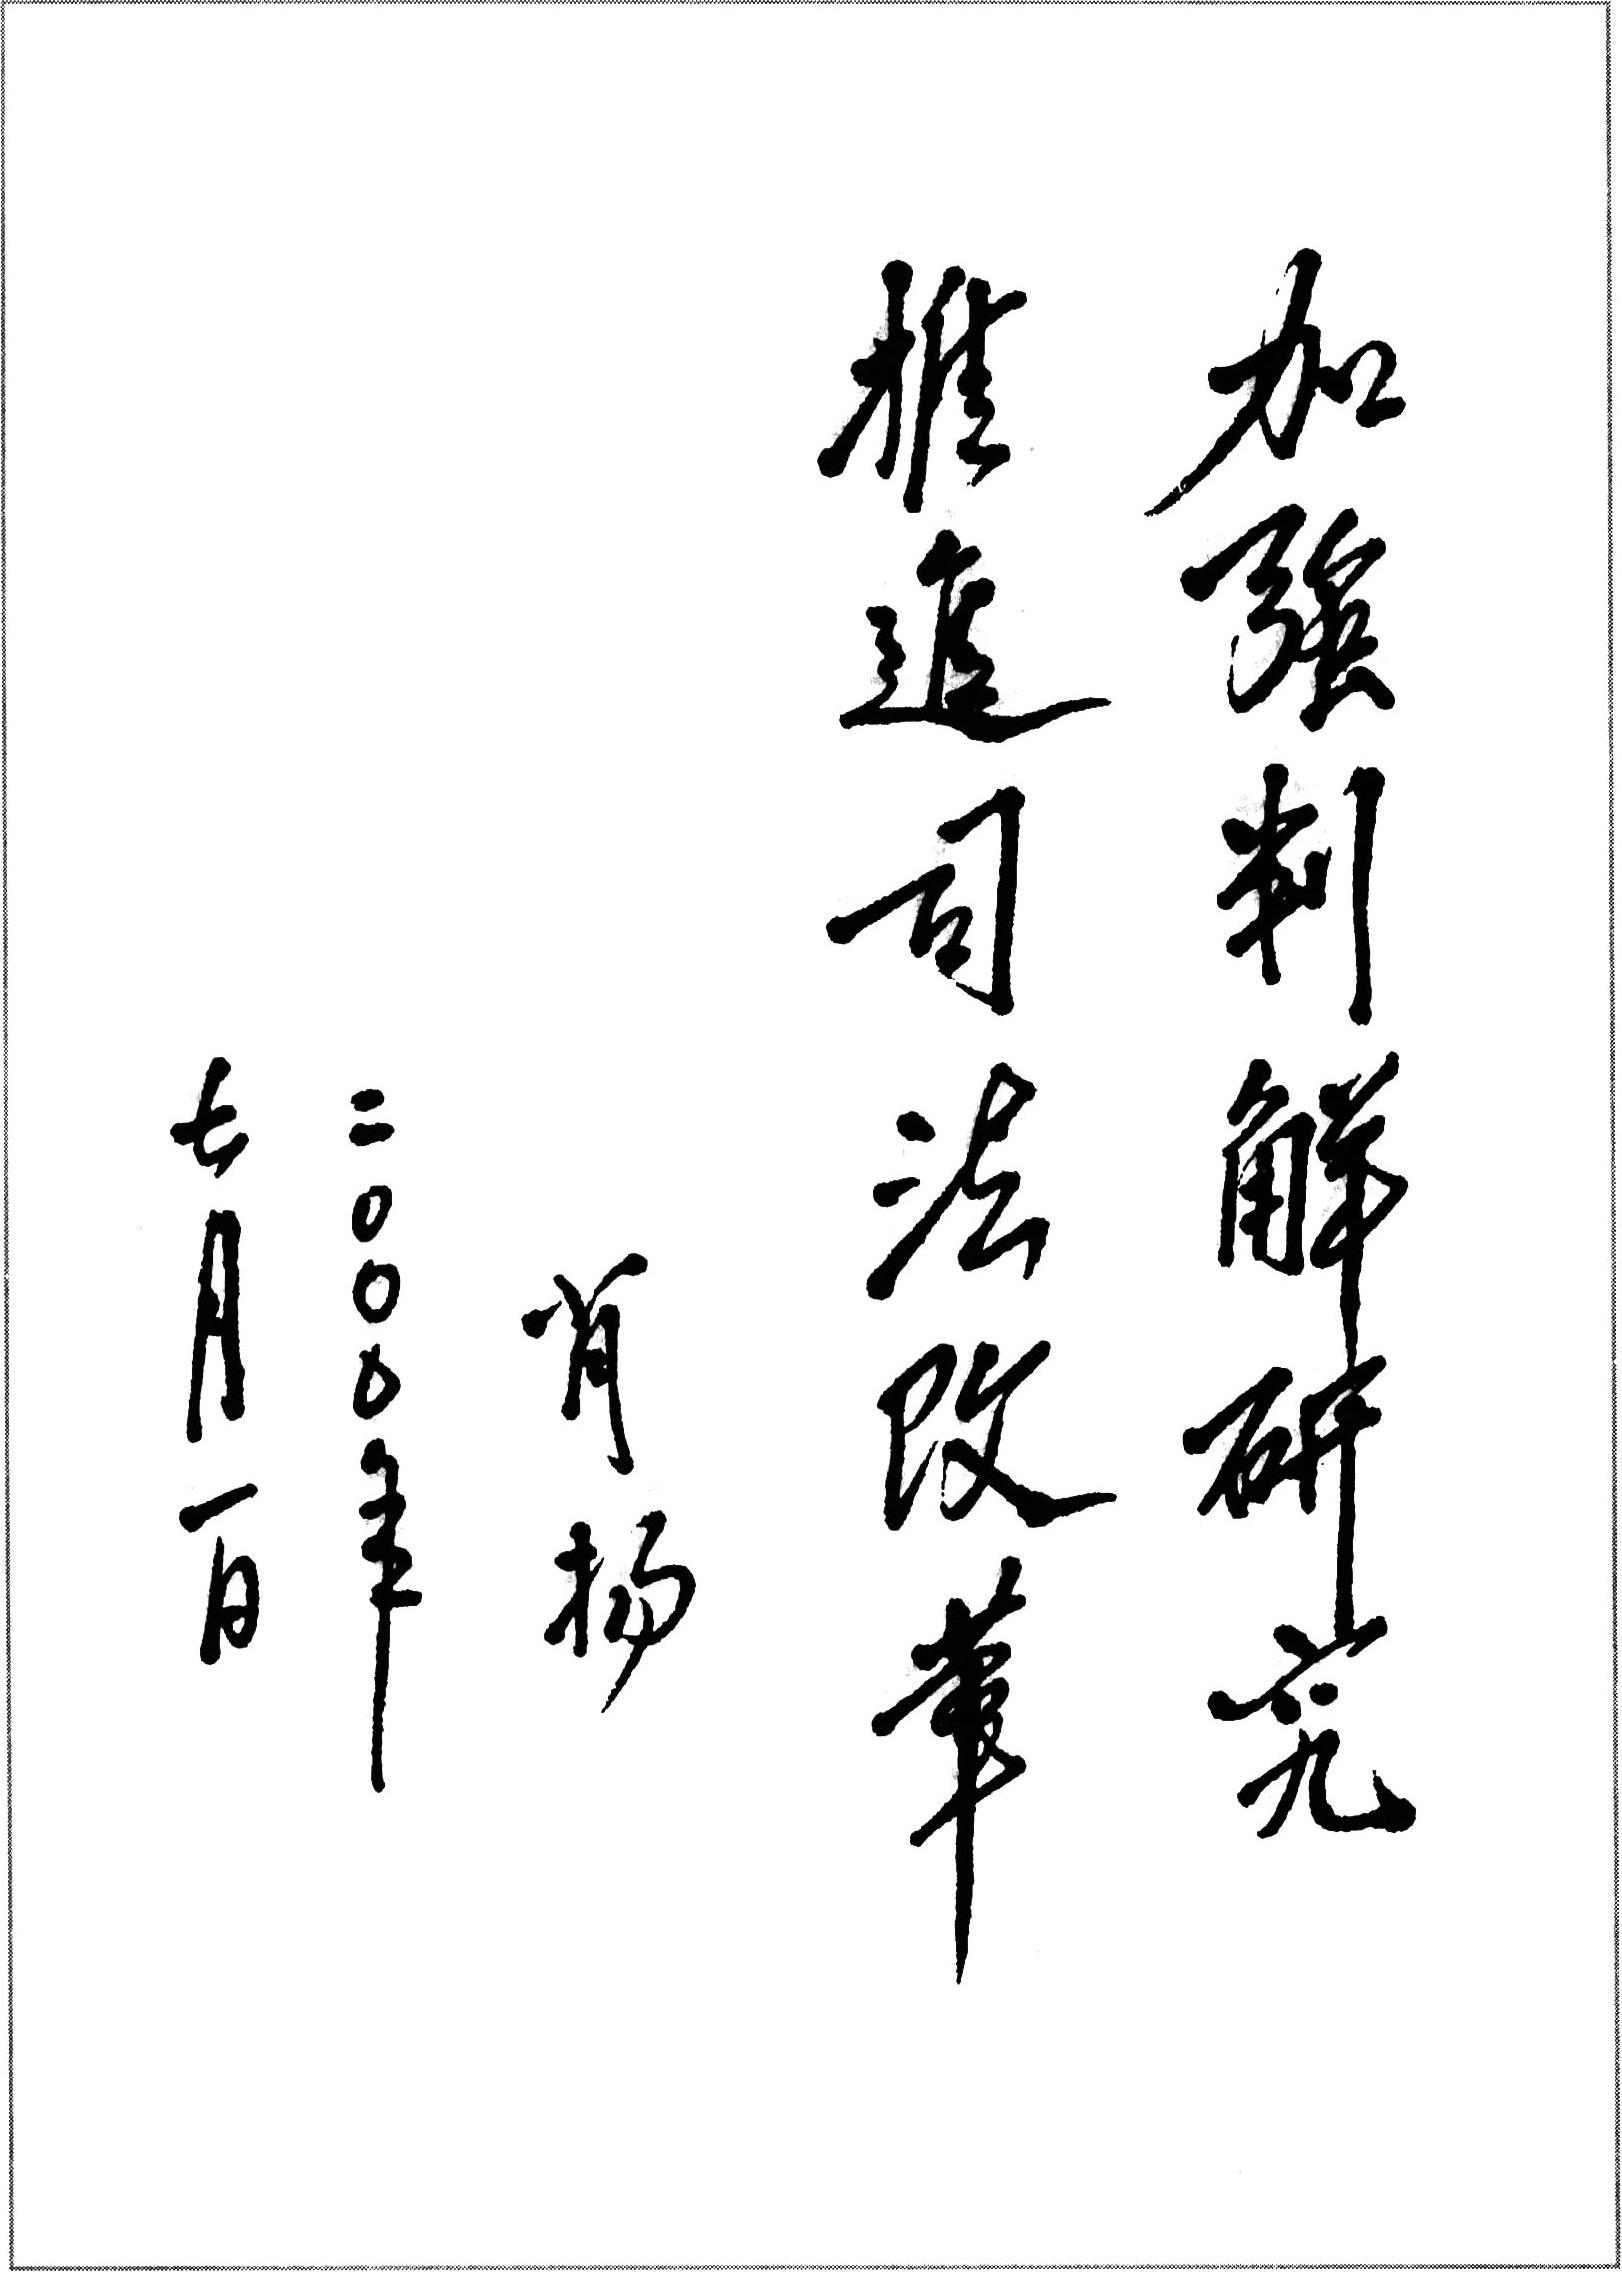 加强判解研究
推进司法改革
肖扬
二〇〇〇年
七月一日